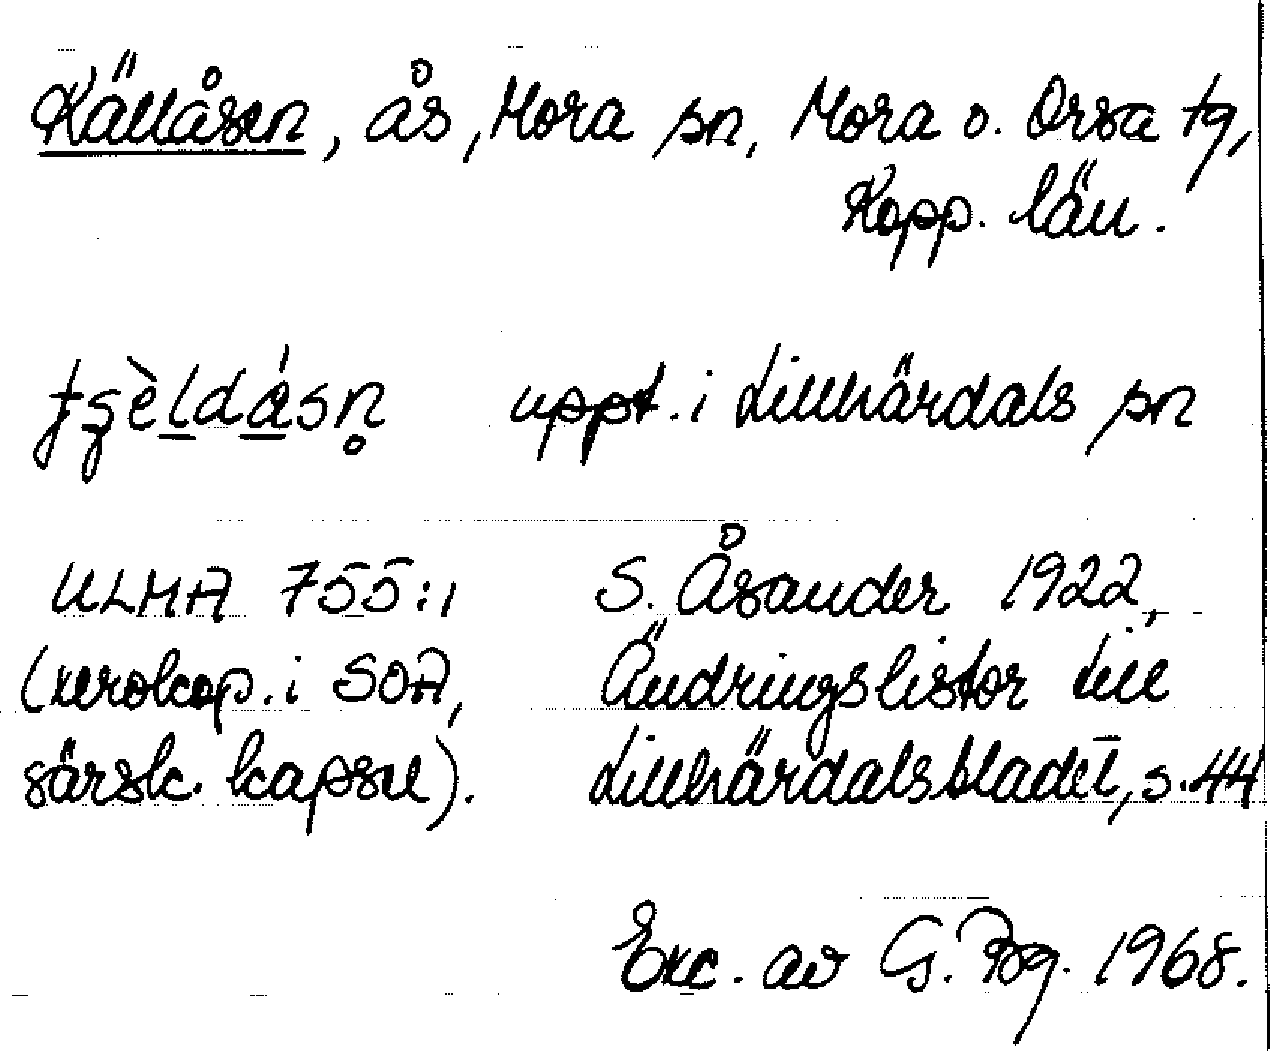 Källåsen, ås, Mora sn, Mora o. Orsa tg,
Kopp. län.
uppt. i Lillhärdals sn
ULMA 755:1 S. Åsander 1922,
(xerokop. i SOA, Ändringslistor till
särsk. kapsel). Lillhärdalsbladet, s. 44
Exc. av G. Bg. 1968.